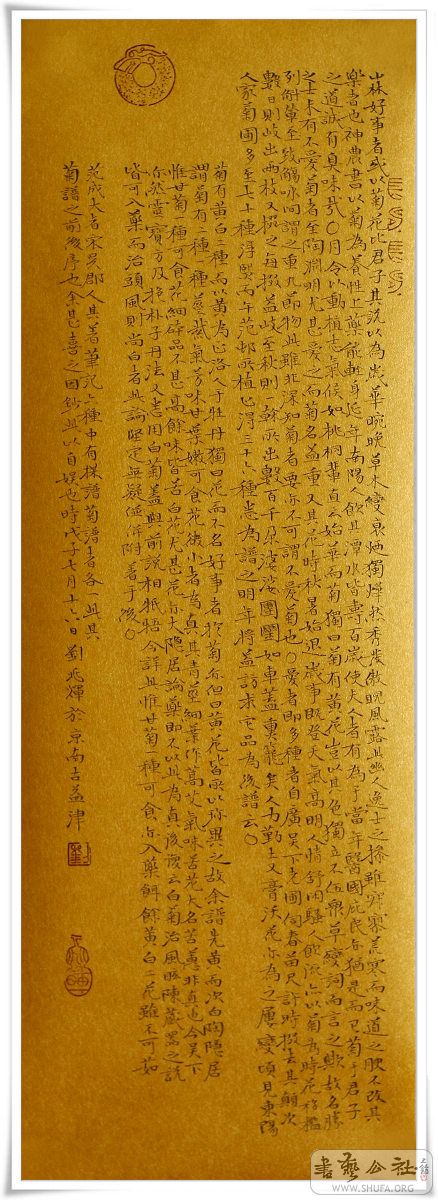 山林好事者或以菊花比君子其說以為歲華晼晚草木變衰迺獨燁然秀發傲睨風露此幽人逸士之操雖寂寥荒寒而味道之腴不改其
樂者也神農書以菊為養性上藥能輕身延年南陽人飲其潭水皆壽百歲使夫人者有為于當年醫國庇民亦猶是而已菊于君子
之道誠有臭味哉〇月令以動植志氣候如桃桐輩直云始華而菊獨曰菊有黃花豈以其正色獨立不伍眾草變詞而言之歟故名勝
之士未有不愛菊者至陶淵明尤甚愛之而菊名益重又其花時秋暑始退歲事既登天氣高明人情舒閒騷人飲流亦以菊為時花移檻
列斛輦至觴詠間謂之重九節物此雖非深知菊者要亦不可謂不愛菊也〇愛者既多種者日廣吳下老圃伺春苗尺許時掇去其顛次
數日則歧出兩枝又掇之每掇益歧至秋則一榦所出數百千朵婆娑團圞如車蓋熏籠矣人力勤土又膏沃花亦為之屢變頃見東陽
人家菊圖多至七十種淳熙丙午范村所植止得三十六種悉為譜之明年將益訪求它品為後譜云〇
菊有黃白二種而以黃為正洛人于牡丹獨曰花而不名好事者於菊亦但曰黃花皆所以珍異之故余譜先黃而次白陶隱居
謂菊有二種一種莖紫氣香味甘葉嫩可食花微小者為真其青莖細葉作蒿艾氣味苦花大名苦薏非真也今吳下
惟甘菊一種可食花細碎品不甚高餘味皆苦白花尤甚花亦大隱居論藥既不以此為真後復云白菊治風眩陳藏器之說
亦然靈寶方及抱朴子丹法又悉用白菊蓋與前說相牴牾今詳此惟甘菊一種可食亦入藥餌餘黃白二花雖不可茹
皆可入藥而治頭風則尚白者此論堅定無疑並附著于後〇
范成大者宋吳郡人其著筆記六種中有梅譜菊譜者各一此其
菊譜之前後序也余甚喜之因鈔此以自娛也時戊子七月十六日劉兆輝於京南吉益津
書藝公社
WWW.SHUFA.ORG